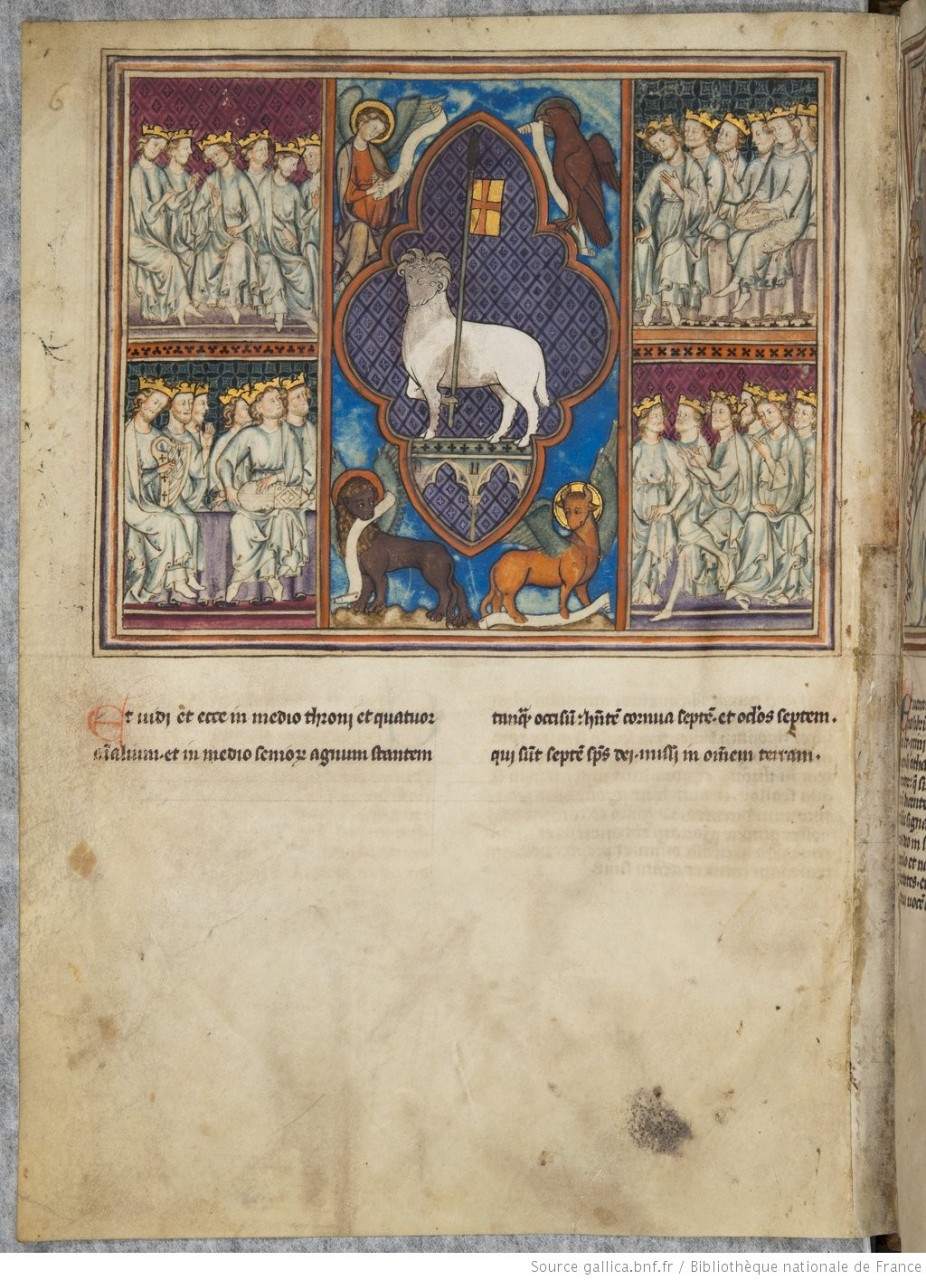 6
Et uidi et ecce in medio throni et quatuor
aīalium· et in medio senioꝝ agnum stantem
tanq̄ᷓ occisū: hn̄tē cornua septē· et oc̄los septem·
qui sūt septē sp̄s dei· missi in om̄em terram·
Source gallica.bnf.fr / Bibliothèque nationale de France